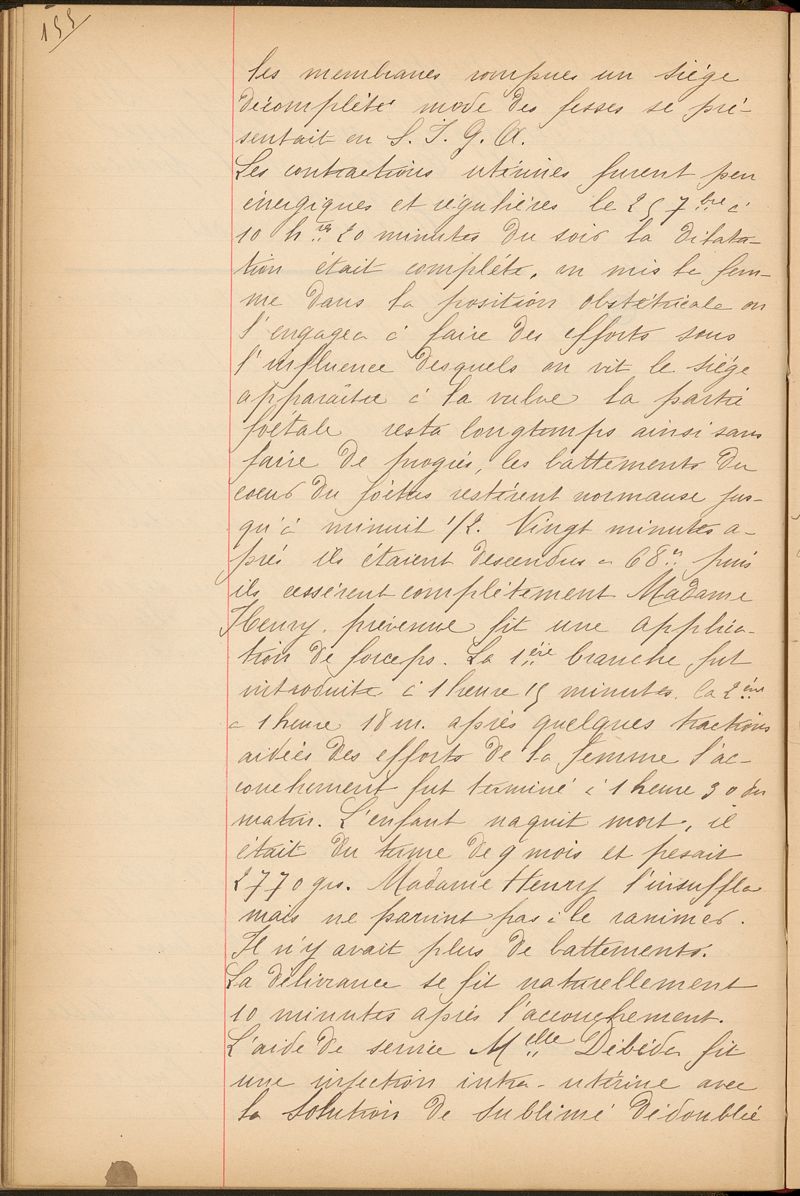 155
les membranes rompues un siége
décomplété mode des fesses se pré-
sentait en S. I. G. A.
Les contractions utérines furent peu
énergiques et régulières le 25 7bre à
10 hres 20 minutes du soir la dilata-
tion était complète, on mis la fem-
me dans la position obstétricale on
l'engagea à faire des efforts sous
l'influence desquels on vit le siége
apparaître à la vulve la partie
foétale resta longtemps ainsi sans
faire de progrès, les battements du
coeur du foétus restèrent normause jus-
qu'à minuit 1/2. Vingt minutes a-
près ils étaient descendus a 68 puis
ils cessèrent complètement Madame
Henry prévenue fit une applica-
tion de forceps. La 1ère branche fut
introduite à 1 heure 15 minutes, la 2ème
a 1 heure 18 m. après quelques tractions
aidées des efforts de la femme l'ac-
couchement fut terminé à 1 heure 30 du
matin. L'enfant naquit mort, il
était du terme de 9 mois et pesait
2770 grs. Madame Henry l'insuffla
mais ne parvint pas à le ranimer.
Il n'y avait plus de battements.
La délivrance se fit naturellement
10 minutes après l'accouchement.
L'aide de service Melle Débéda fit
une injection intra-utérine avec
la solution de sublimé dédoublée